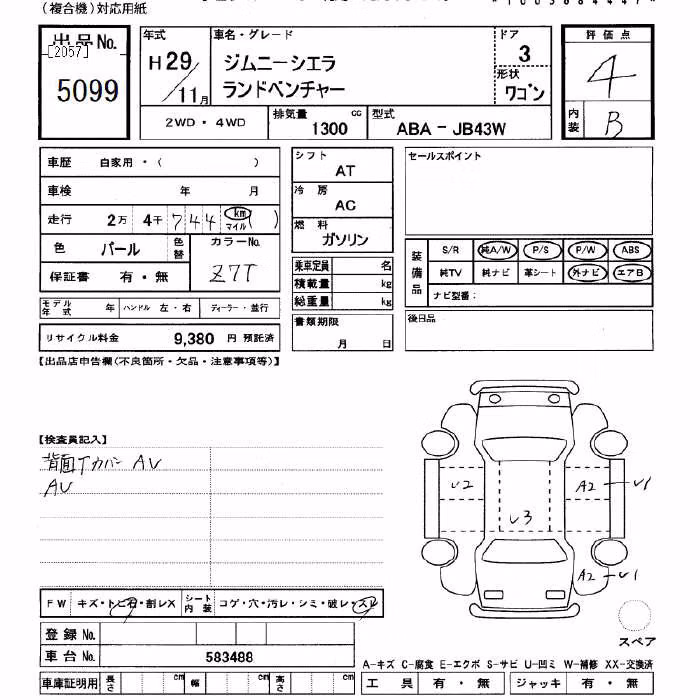 (複合機)対応用紙
出品No.
[2057]
5099
年式
H29/11月
車名・グレード
ジムニーシエラ
ランドベンチャー
ドア
3
形状
ワゴン
評価点
4
内装
B
2WD・4WD
排気量
1300
cc
型式
ABA-JB43W
車歴 自家用・( )
車検 年 月
走行 2万 4千 744 km マイル ( )
色 パール
色替
カラーNo.
Z7T
保証書 有・無
モデル年式 年 ハンドル 左・右 ディーラー・並行
リサイクル料金 9,380 円 預託済
シフト
AT
冷房
AC
燃料
ガソリン
乗車定員 名
積載量 kg
総重量 kg
書類期限
月 日
セールスポイント
装備品
S/R 純A/W P/S P/W ABS
純TV 純ナビ 革シート 外ナビ エアB
ナビ型番:
後日品
【出品店申告欄(不良箇所・欠品・注意事項等)】
【検査員記入】
背面Tカバー AU
AU
U2
A2 U1
U3
A2 U1
スペア
FW キズ・トビ石・割レX シート内装 コゲ・穴・汚レ・シミ・破レ・スレ
登録No.
車台No. 583488
車庫証明用 長さ cm 幅 cm 高さ cm
A-キズ C-腐食 E-エクボ S-サビ U-凹ミ W-補修 XX-交換済
工具 有・無 ジャッキ 有・無